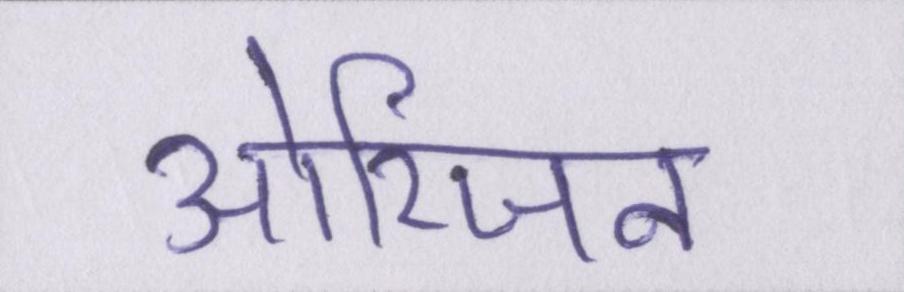 ओरिजन